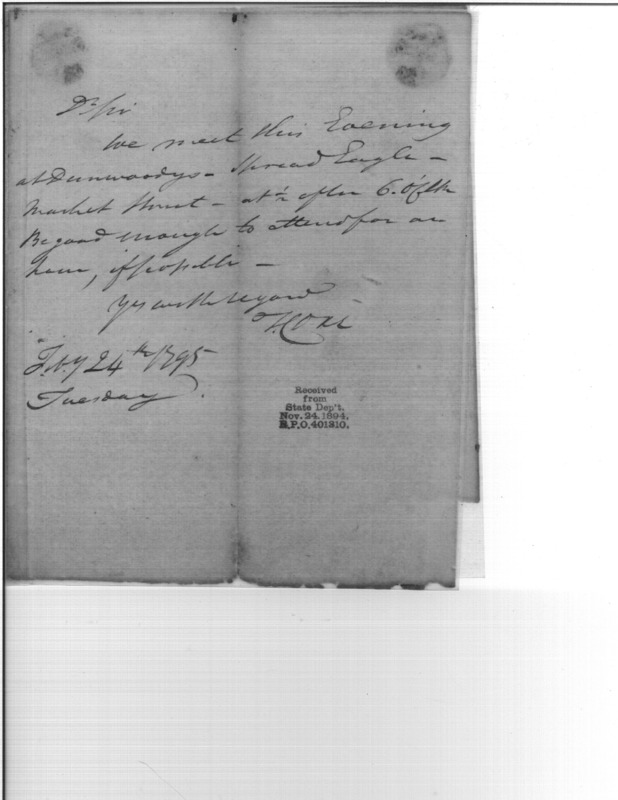 Dr Sir
We meet this Evening
at Dunwoodys - Spread Eagle -
Market Street - at ½ after 6. o'Clk
Be good enough to attend for an
hour, if possible -
Yrs with regard
Feby 24th 1795
Tuesday.
Received
from
State Dep't.
Nov. 24. 1894.
R.P.O. 401310.